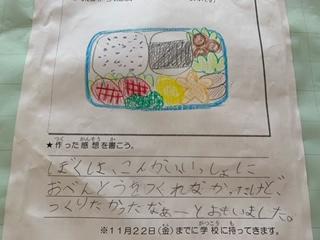 ★作った感想を書こう。
つく かんそう か
ぼくは、こんかいいっしょに
おべんとうをつくれなかったけど、
つくりたかったなぁーとおもいました。
がっこう も
※11月22日(金)までに学校に持ってきます。